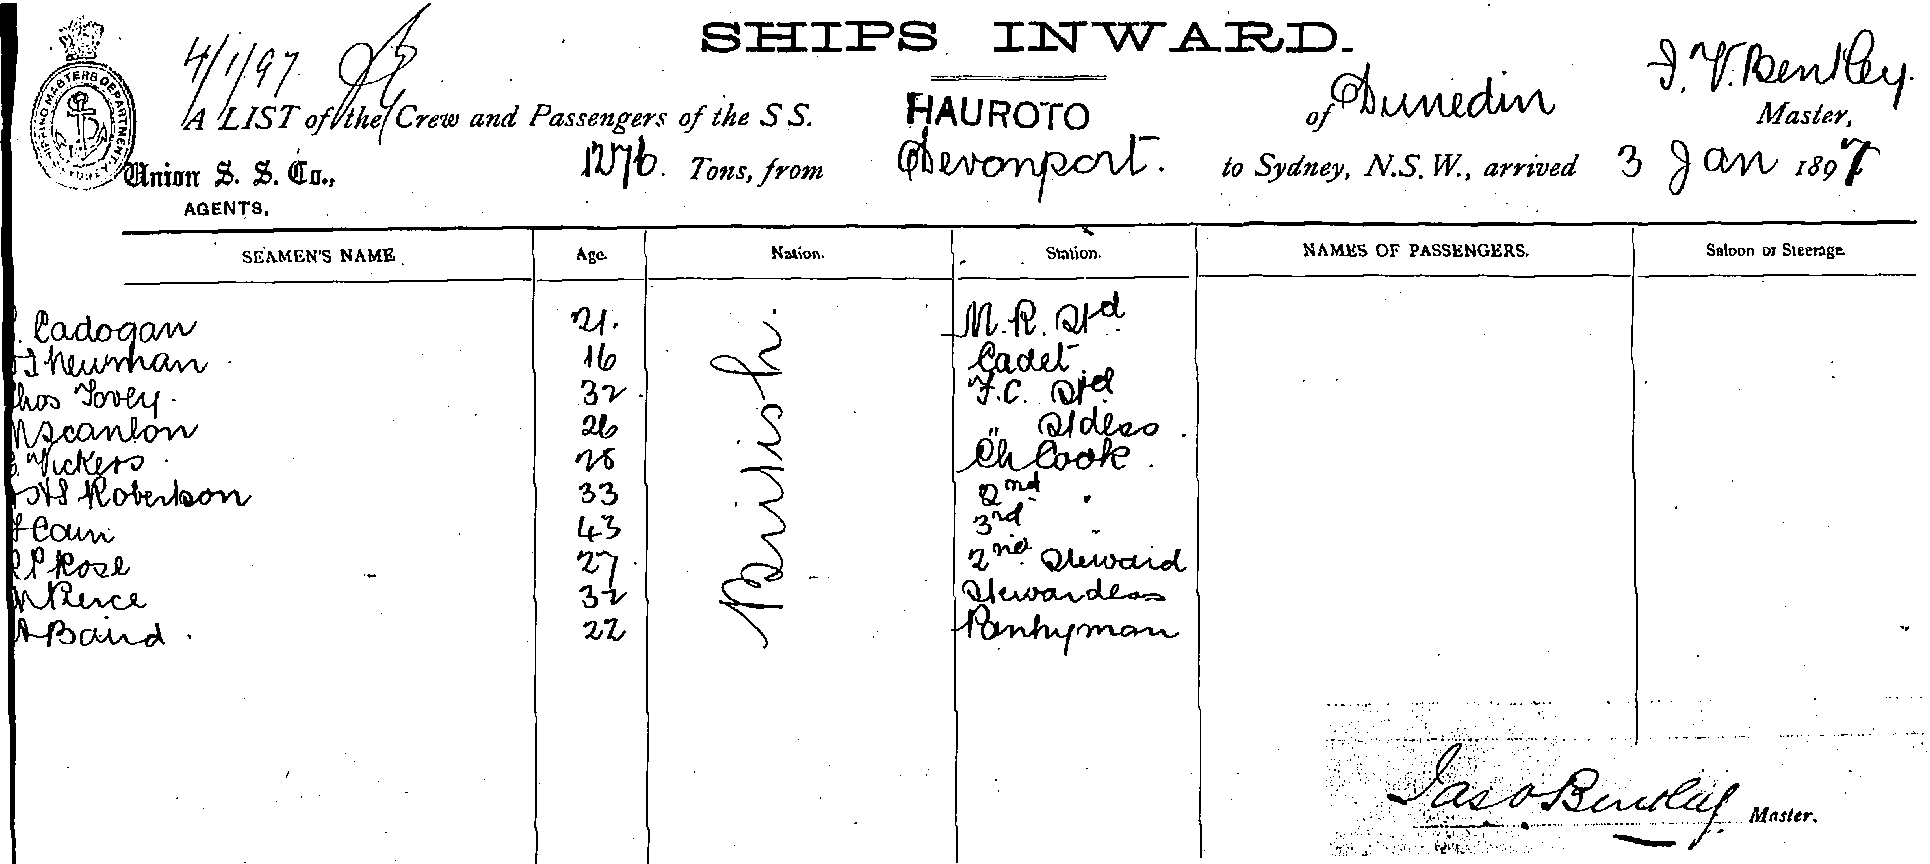 SHIPS INWARD.
4/1/97
SHIPPING MASTERS DEPARTMENT SYDNEY
J. V. Bentley.
A LIST of the Crew and Passengers of the S S. HAUROTO of Dunedin Master,
Union S. S. Co., 1276. Tons, from Devonport. to Sydney, N.S.W., arrived 3 Jan 1897
AGENTS,
SEAMEN'S NAME Age. Nation. Station. NAMES OF PASSENGERS. Saloon or Steerage
Cadogan 21. British. M. R. Std
Newman 16 Cadet
hos Tovey. 32 F. C. Std
Scanlon 26 " Stdess.
Vickers 28 Ch Cook.
Robertson 33 2nd "
Cain 43 3rd "
P Rose 27 2nd Steward
Pierce 32 Stewardess
A Baird. 22 Pantryman
Jas V Bentley Master.